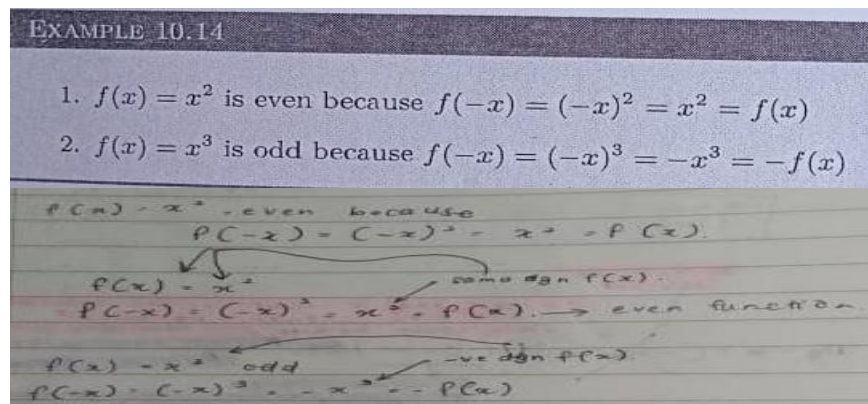 EXAMPLE 10.14
1. f(x) = x² is even because f(-x) = (-x)² = x² = f(x)
2. f(x) = x³ is odd because f(-x) = (-x)³ = -x³ = -f(x)
f(x) = x² - even because
f(-x) = (-x)² = x² = f(x).
f(x) = x²
same dgn f(x).
f(-x) = (-x)² = x² = f(x). → even function
f(x) = x³ odd
-ve dgn f(x)
f(-x) = (-x)³ = -x³ = -f(x)